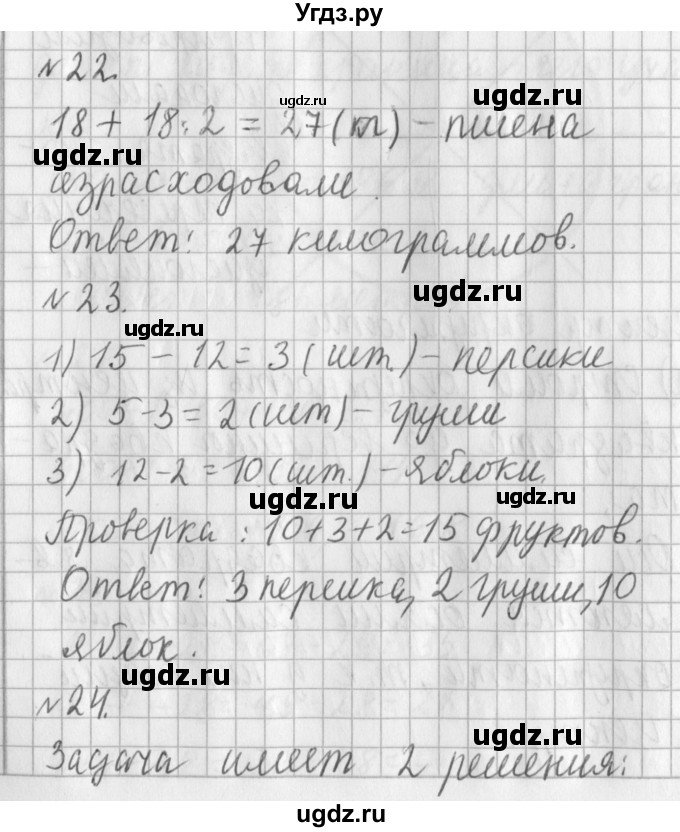 Угдз.ру
№22.
ugdz.ru
ugdz.ru
18 + 18:2 = 27 (кг) - пшена
ugdz.ru
израсходовали.
Ответ: 27 килограммов.
ugdz.ru
№23.
ugdz.ru
1) 15 - 12 = 3 (шт.) - персики
2) 5-3 = 2 (шт) - груши
3) 12-2 = 10 (шт.) - яблоки.
ugdz.ru
ugdz.ru
Проверка : 10+3+2=15 фруктов.
Ответ: 3 персика, 2 груши, 10
яблок.
ugdz.ru
№24.
ugdz.ru
Задача имеет 2 решения:
ugdz.ru